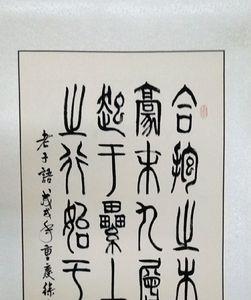 合抱之木
豪末九層
起于纍土
之行始于
老子語戊戌年重慶徐